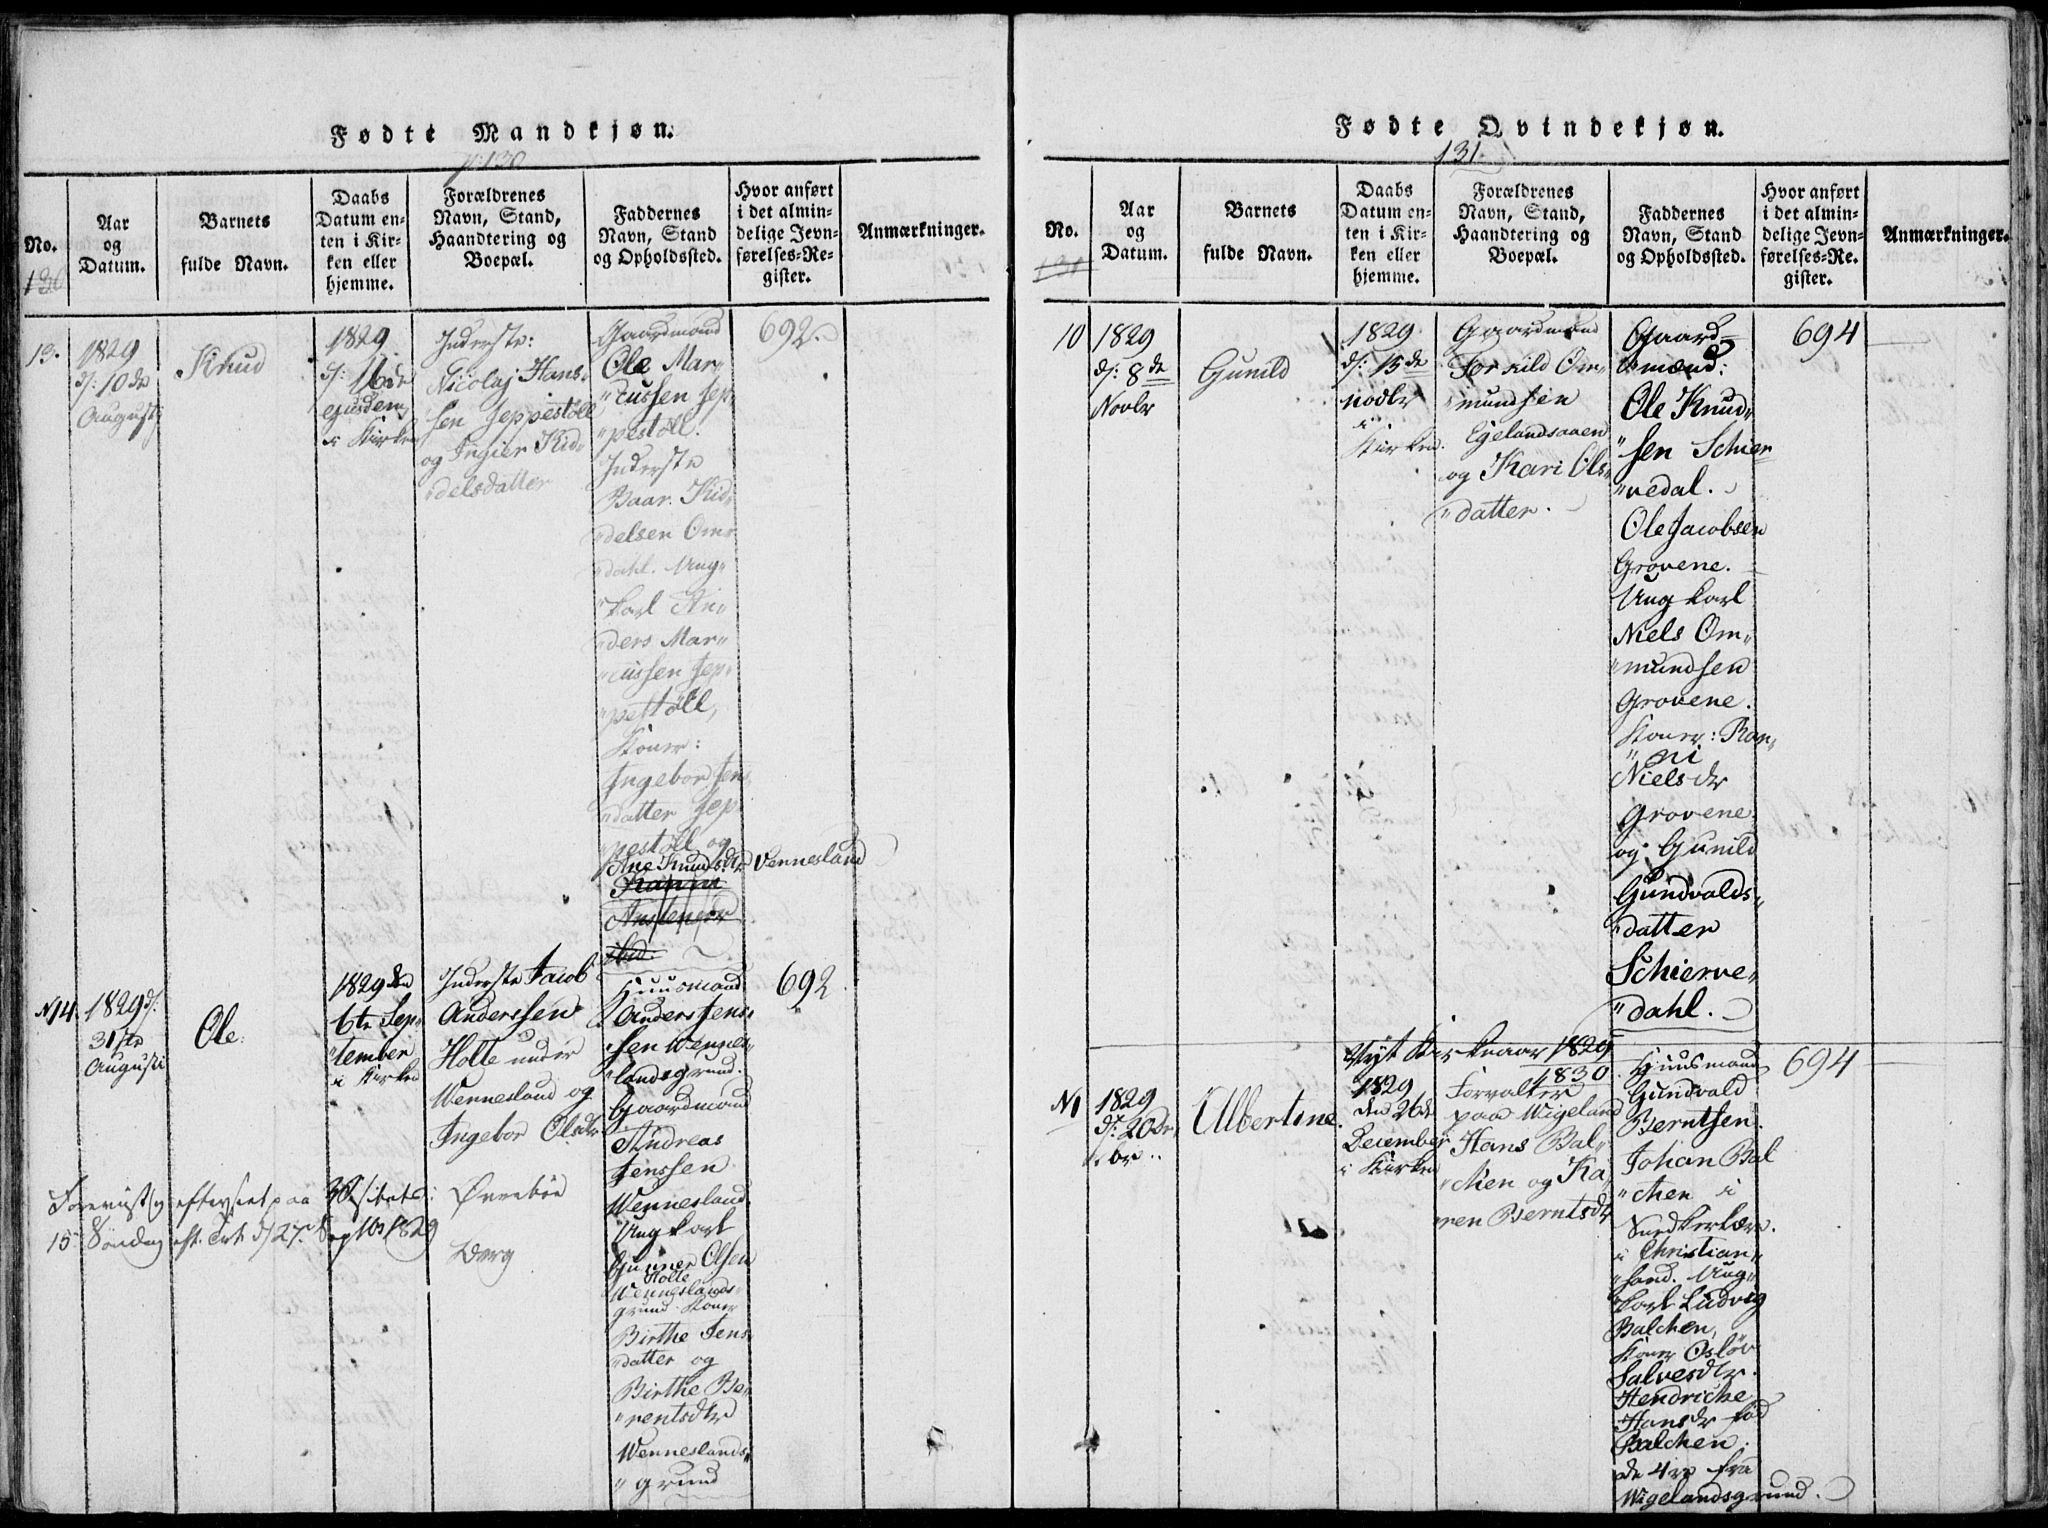 Fødte Mandkjøn.
p. 130
No.
Aar
og
Datum.
Barnets
fulde Navn.
Daabs
Datum en-
ten i Kir-
ken eller
hjemme.
Forældrenes
Navn, Stand,
Haandtering og
Boepæl.
Faddernes
Navn, Stand
og Opholdssted.
Hvor anført
i det almin-
delige Jevn-
førelses-Re-
gister.
Anmærkninger.
130
13.
1829
d: 10de
August
Knud
1829
d: 16de
ejusdem
i Kirken
Inderste:
Nicolaj Hans-
sen Jeppestøll
og Ingier Kid"
"delsdatter
Gaardmænd
Ole Mar"
"cussen Jep"
"pestøll.
Inderste
Baar. Kid"
"delsen Om"
"dahl. Ung"
"karl An"
ders Mar"
"cussen Jep"
"pestøll,
Koner:
Ingebor Jens
"datter Jep"
"pestøll og
Ane Knudsdtr Vennesland
692.
N14.
1829 d:
31te
Augusti
Ole.
1829 den
6te Sep"
"tember
i Kirken
Inderste Jacob
Anderssen
Holte under
Wennesland og
Ingebor Olsdtr
Huusmænd
Anders Jens"
"sen Wennes"
"landsgrund.
Gaardmænd
Andreas
Jenssen
Wennesland.
Ung karl
Gunner Olsen
Holte
Wenneslands-
grund. Koner
Birthe Jens"
"datter og
Birthe Be"
"rentsdtr
Wenneslands"
"grund
692
15 Søndag eft. Trt. d 27. Sept 1829
Øvrebøe
Berg
Fødte Qvindekjøn.
131
No.
Aar
og
Datum.
Barnets
fulde Navn.
Daabs
Datum en-
ten i Kir-
ken eller
hjemme.
Forældrenes
Navn, Stand,
Haandtering og
Boepæl.
Faddernes
Navn, Stand
og Opholdssted.
Hvor anført
i det almin-
delige Jevn-
førelses-Re-
gister.
Anmærkninger.
131
10
1829
d: 8de
Novbr
Gunild
1829
d: 15de
Novbr
i
Kirken.
Gaardmand
Torkild Om"
"mundsen
Egelandsaaen
og Kari Ols"
"datter.
Gaard-
"mænd:
Ole Knud"
"sen Schier-
"vedal.
Ole Jacobsen
Grovene.
Ung karl
Niels Om"
"mundsen
Grovene.
Koner: Ran"
"ni
Nielsdtr
Grovene
og Gunild
Gundvalds"
"datter
Schierve"
"dahl.
694
Nyt Kirkeaar 1829
1830
N1
1829
d: 20de
Albertine
1829
den 26de
December
i Kirken
Forvalter
paa Wigeland
Hans Bal"
"chen og Ka"
"ren Berntsdtr
Huusmænd
Gundvald
Berntsen.
Johan Bal
"chen i
i Christian"
"sand. Ung"
"karl Ludvig
Balchen,
Koner Osløv
Salvesdtr.
Hendriche
Hansdtr fød
Balchen.
De 4re fra
Wigelandsgrund.
694